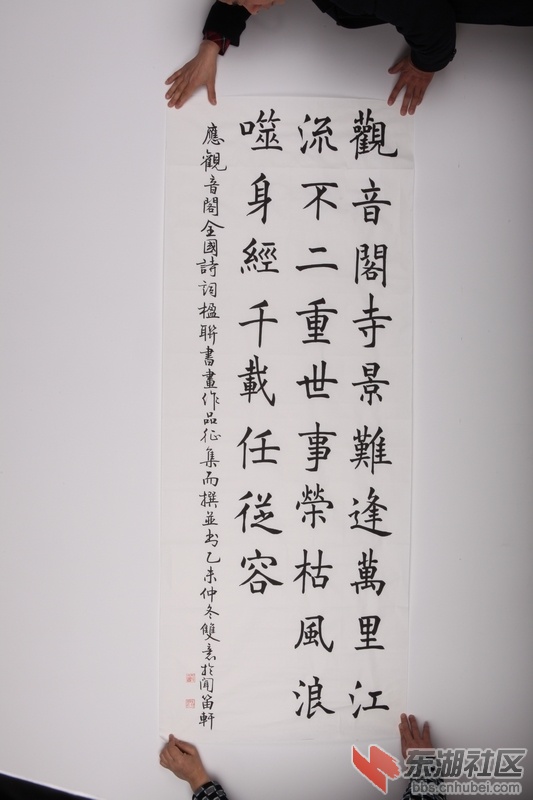 觀音閣寺景難逢萬里江
流不二重世事榮枯風浪
噬身經千載任從容
應觀音閣全國詩詞楹聯書畫作品征集而撰並书乙未仲冬雙意於聞笛軒
东湖社区
bbs.cnhubei.com